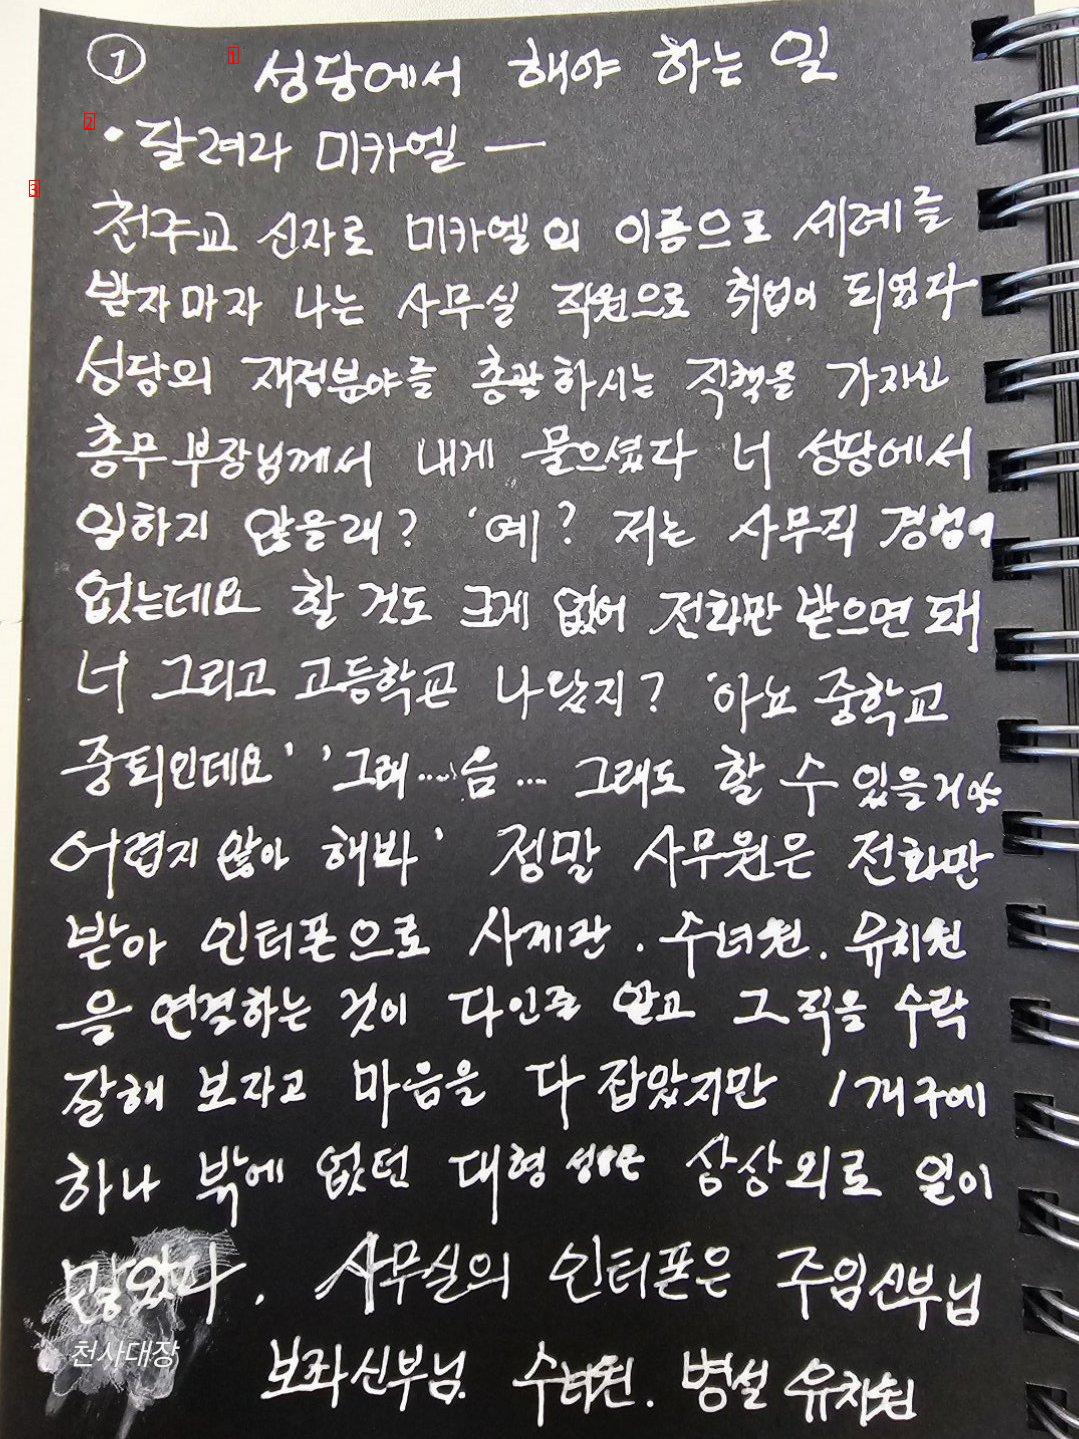 ① 성당에서 해야 하는 일
• 달려라 미카엘 —
천주교 신자로 미카엘의 이름으로 세례를
받자마자 나는 사무실 직원으로 취업이 되었다
성당의 재정분야를 총괄하시는 직책을 가지신
총무부장님께서 내게 물으셨다 너 성당에서
일하지 않을래? '예? 저는 사무직 경험이
없는데요 할 것도 크게 없어 전화만 받으면 돼
너 그리고 고등학교 나왔지? '아뇨 중학교
중퇴인데요' '그래....음... 그래도 할 수 있을거야
어렵지 않아 해봐' 정말 사무원은 전화만
받아 인터폰으로 사제관. 수녀원. 유치원
을 연결하는 것이 다인줄 알고 그 직을 수락
잘해 보자고 마음을 다 잡았지만 1개구에
하나 밖에 없던 대형 상상외로 일이
많았다. 사무실의 인터폰은 주임신부님
보좌신부님. 수녀원. 병설 유치원
천사대장
1
2
3